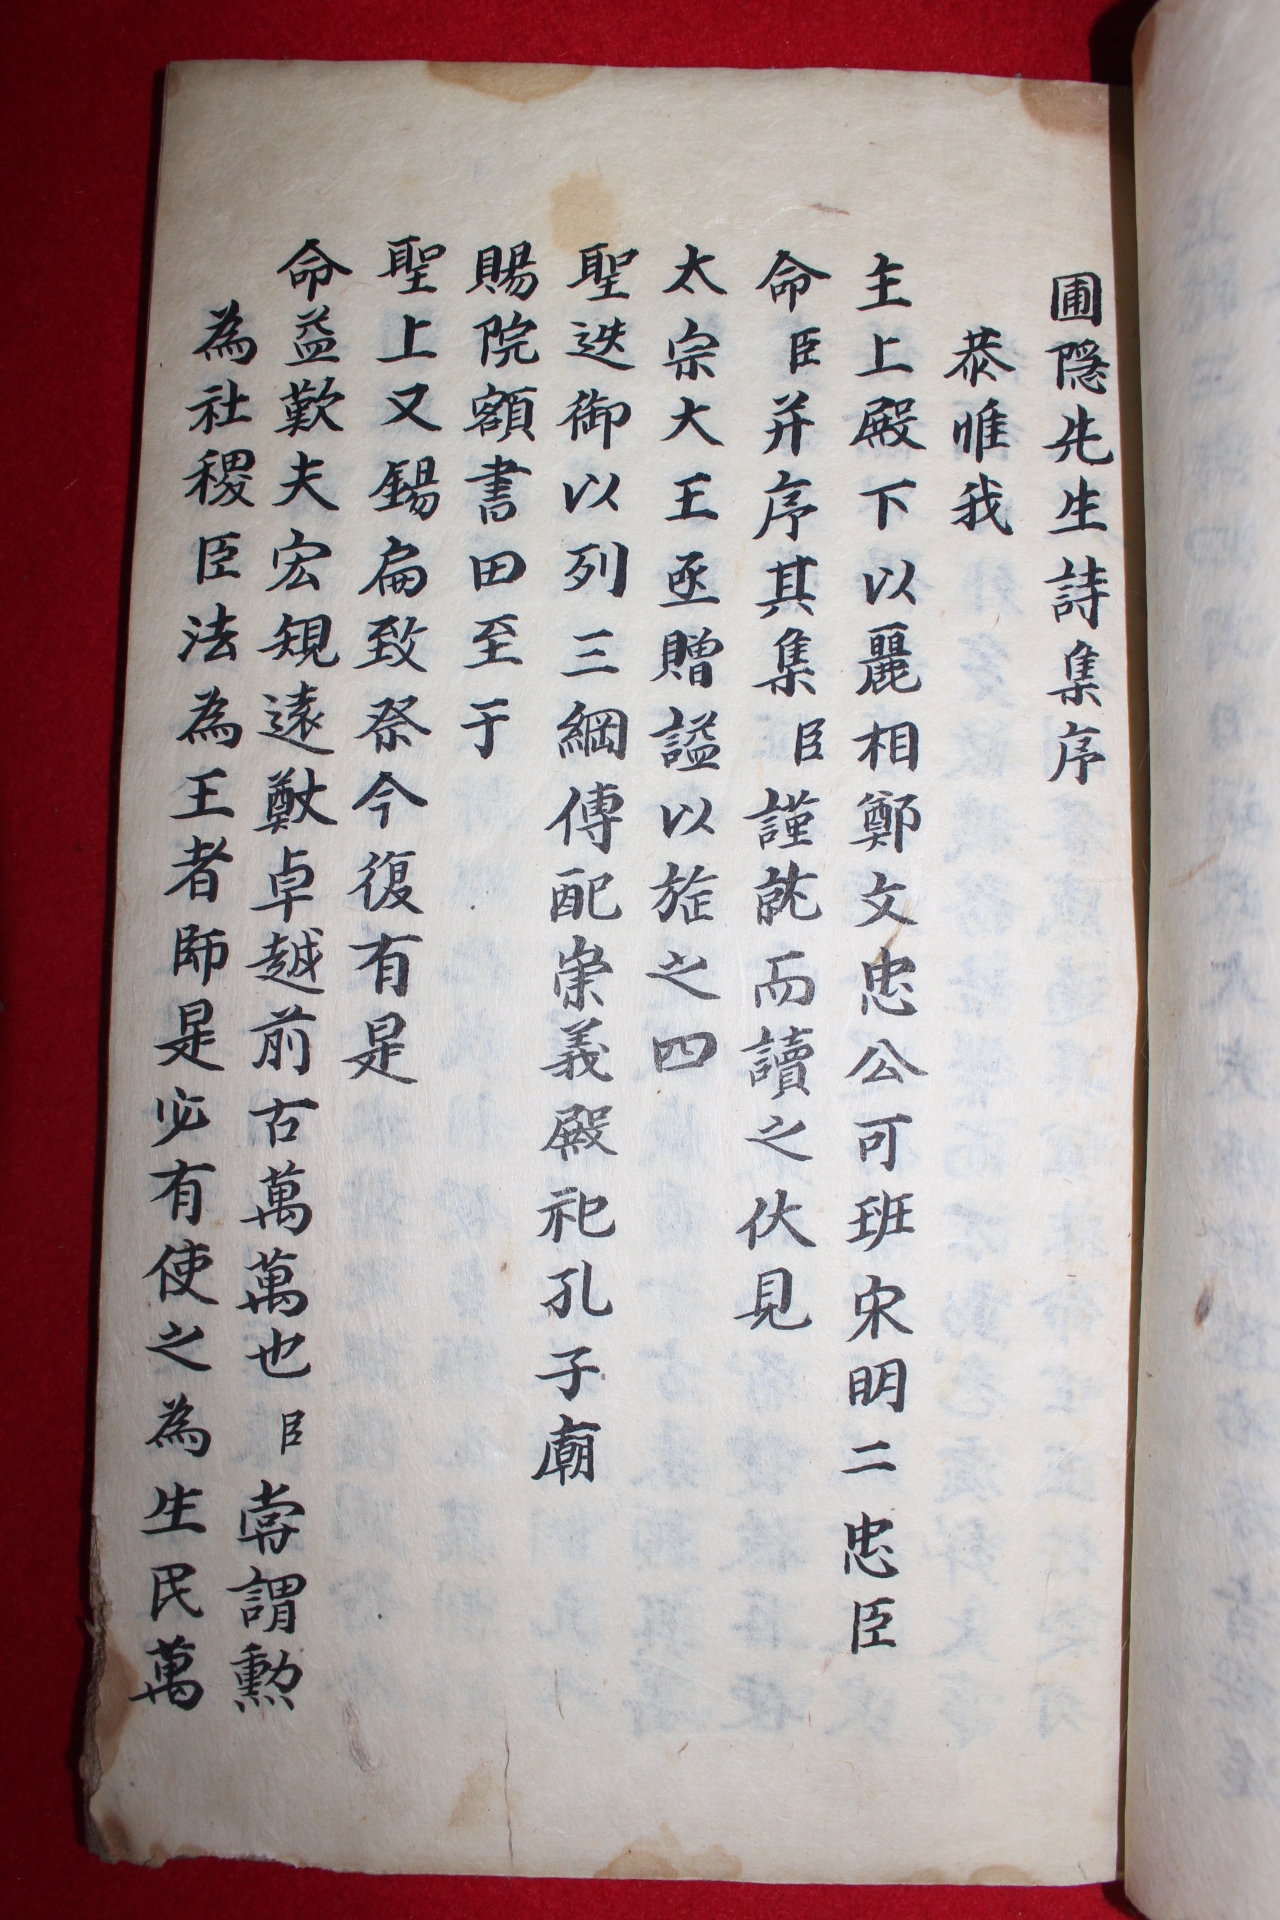 圃隱先生詩集序
恭惟我
主上殿下以麗相鄭文忠公可班宋明二忠臣
命臣并序其集臣謹就而讀之伏見
太宗大王亟贈諡以旌之四
聖迭御以列三綱傳配崇義殿祀孔子廟
賜院額書田至于
聖上又錫扁致祭今復有是
命益歎夫宏規遠猷卓越前古萬萬也臣嘗謂勳
為社稷臣法為王者師是必有使之為生民萬